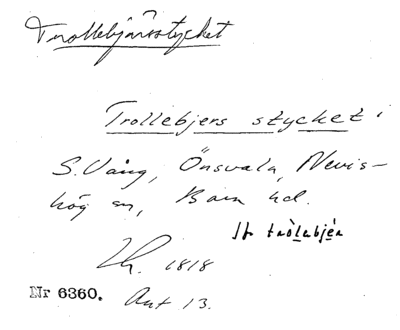 Trollebjärsstycket
Trollebjers stycket i
S. Vång, Önsvala, Nevis-
hög sn, Bara hd.
It tròlabjér
1818
Nr 6360. Akt 13.